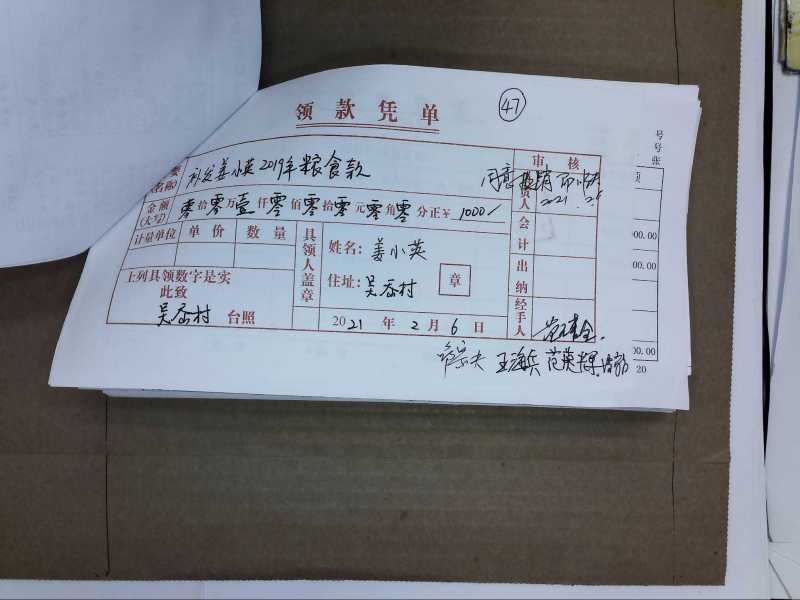 47
领款凭单
要
(名称)
补发姜小英2019年粮食款
审核
同意报销
负责人
2021
金额
(大写)
零拾零万壹仟零佰零拾零元零角零分正¥ 1000/
计量单位 单价 数量
具领人盖章
姓名: 姜小英
住址: 吴岙村
章
会计
出纳
经手人
上列具领数字是实
此致
吴岙村 台照
2021 年 2 月 6 日
王海兵 范英
号
号
张
项
00.00
00.00
00.00
20